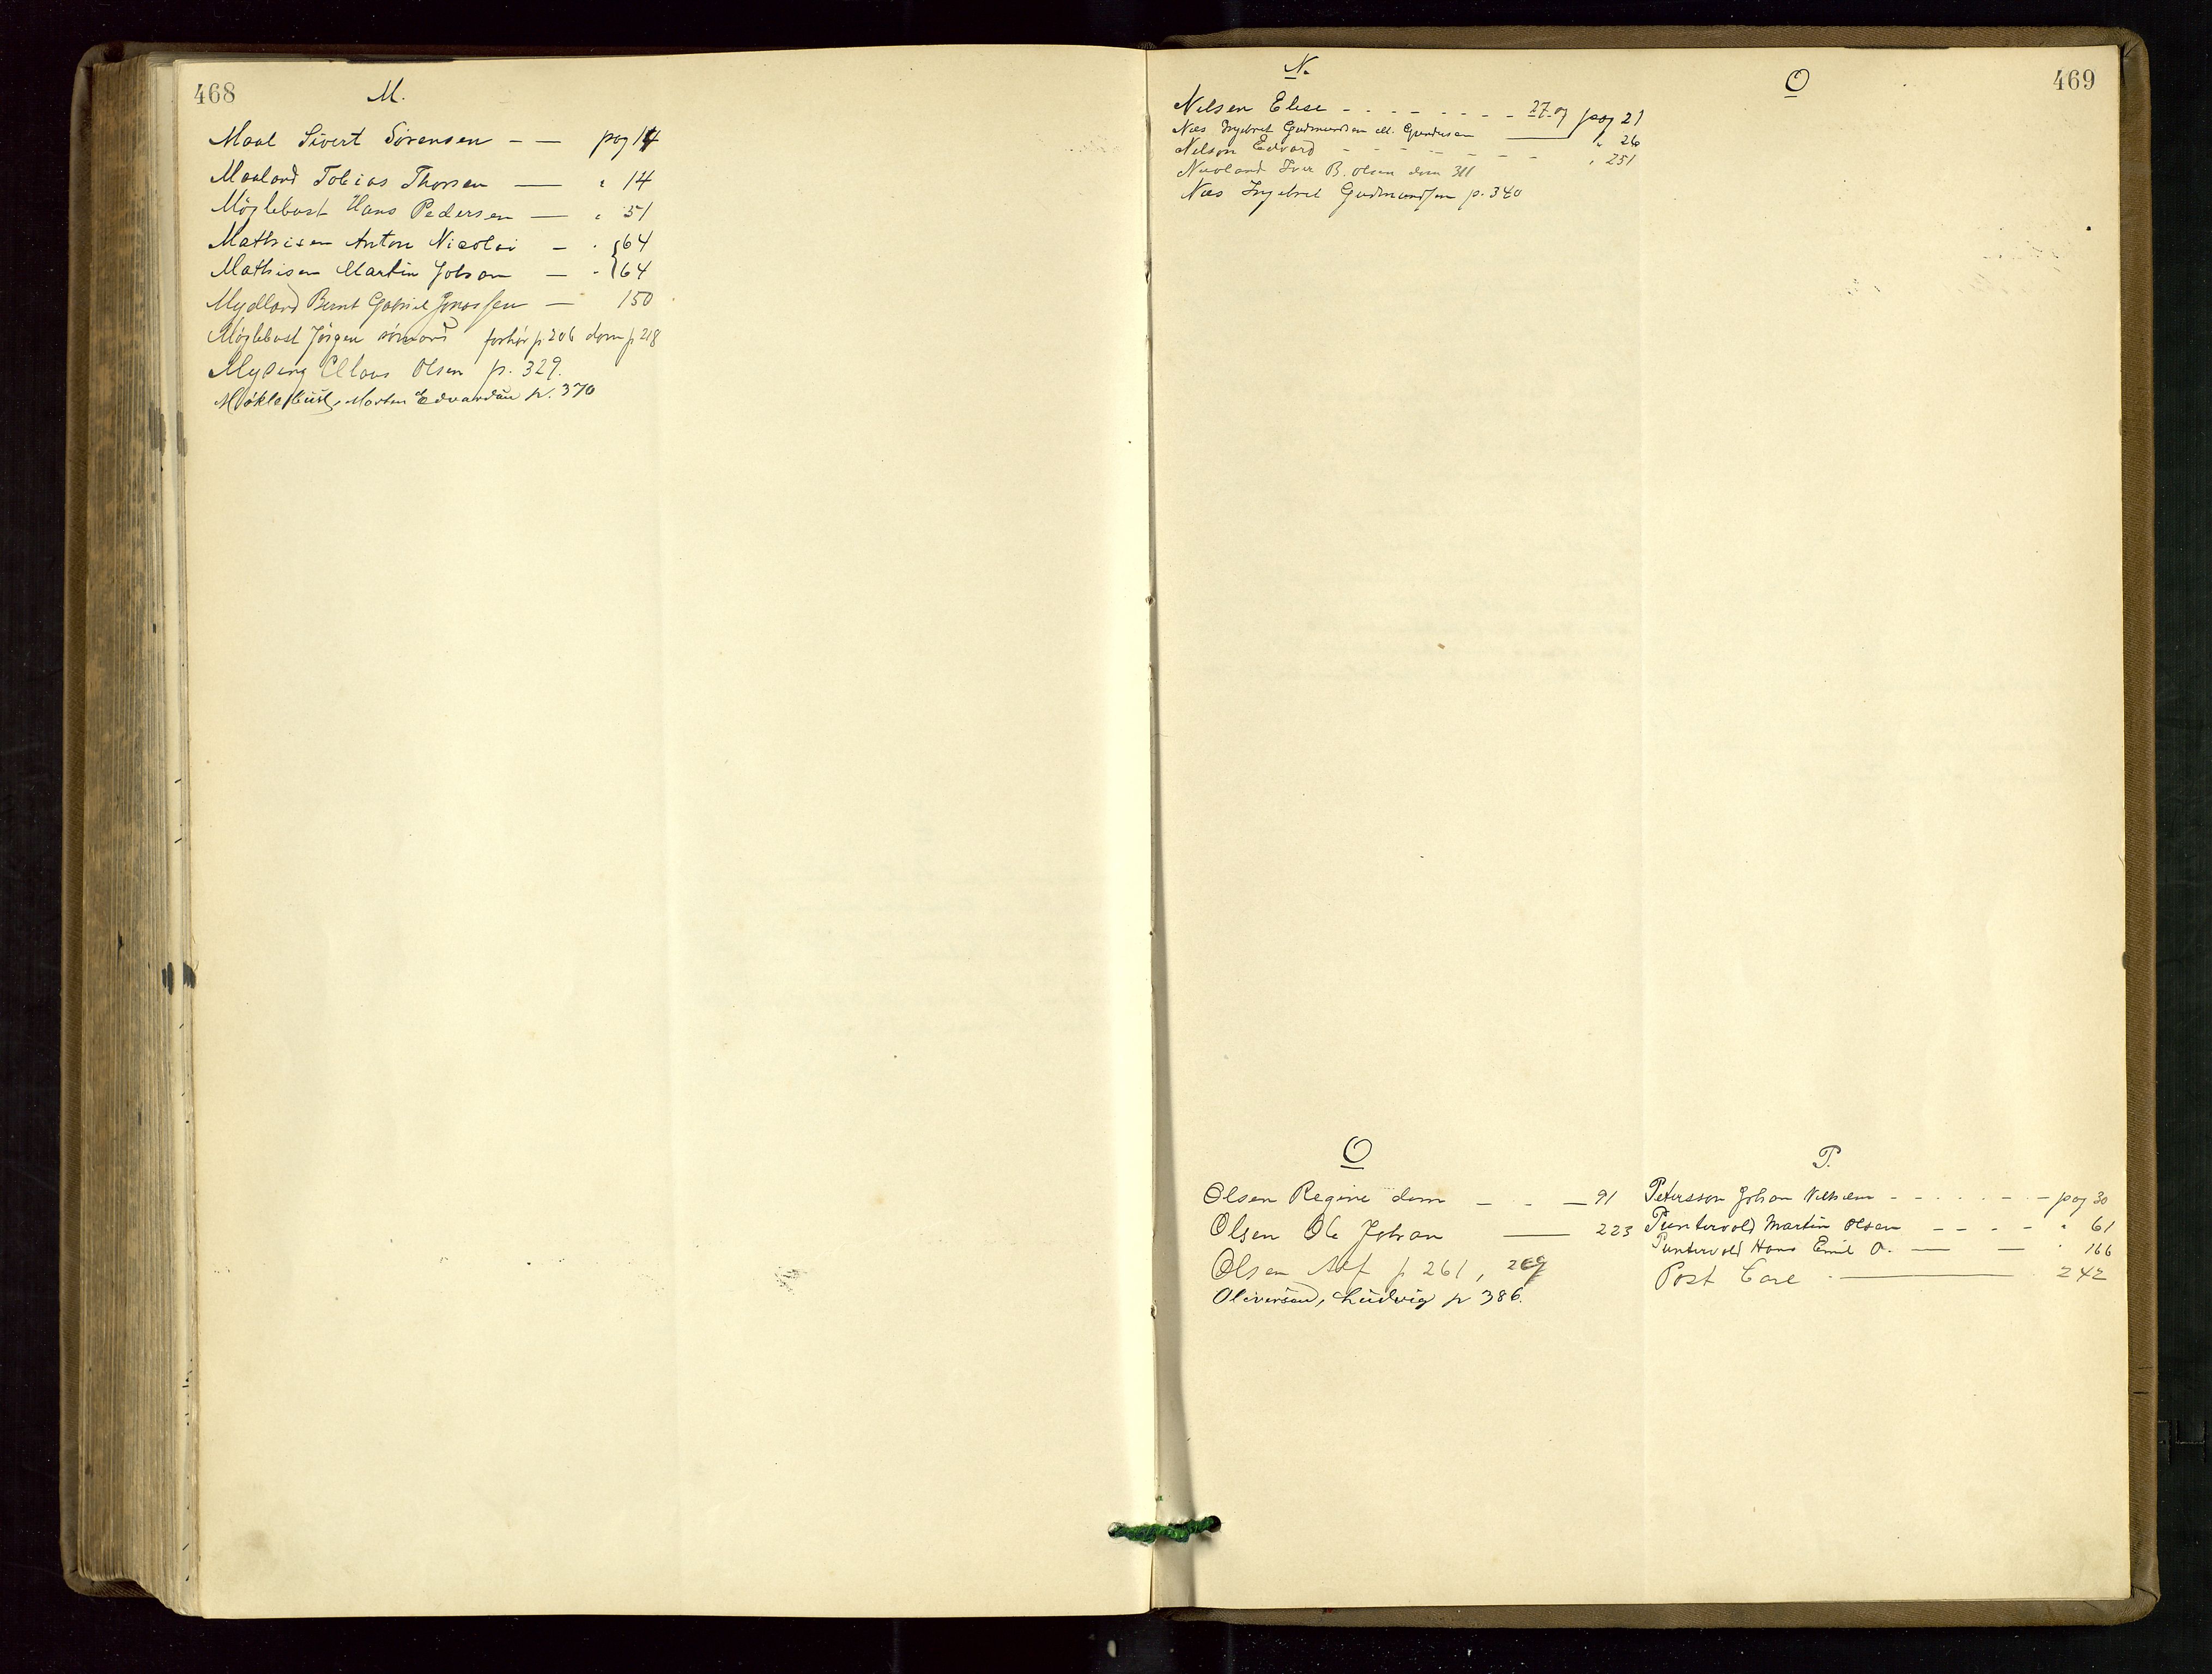 468
M.
Maal Sivert Sörensen — — pag 14
Maaland Tobias Thorsen — " 14
Möglebust Hans Pedersen — " 51
Mathisen Anton Nicolai — " 64
Mathisen Martin Johan — " 64
Mydland Bernt Gabriel Jonassen — 150
Möglebust Jörgen forhör p 206 dom p 218
Olsen p. 329.
Møklebust, Morten Edvardsen p. 370
469
N.
Nilsen Elise - - - - - - - - 27 og pag 21
Næs Ingebret Gudmundsen " 26
Nilson Edvard - - - - - - - " 251
Iver B. Olsen dom 311
Næs Ingebret Gudmundsen p. 340
O
O
Olsen Regine dom — - — 91
Olsen Ole Johan — 223
Olsen Alf p 261, 269
Oliversen, Ludvig p 386.
P.
Petersson Johan Vilhelm - - - - - - - pag 30
Puntervold Martin Olsen - - - - " 61
Puntervold Hans Emil O. — — " 166
Post Carl — 242